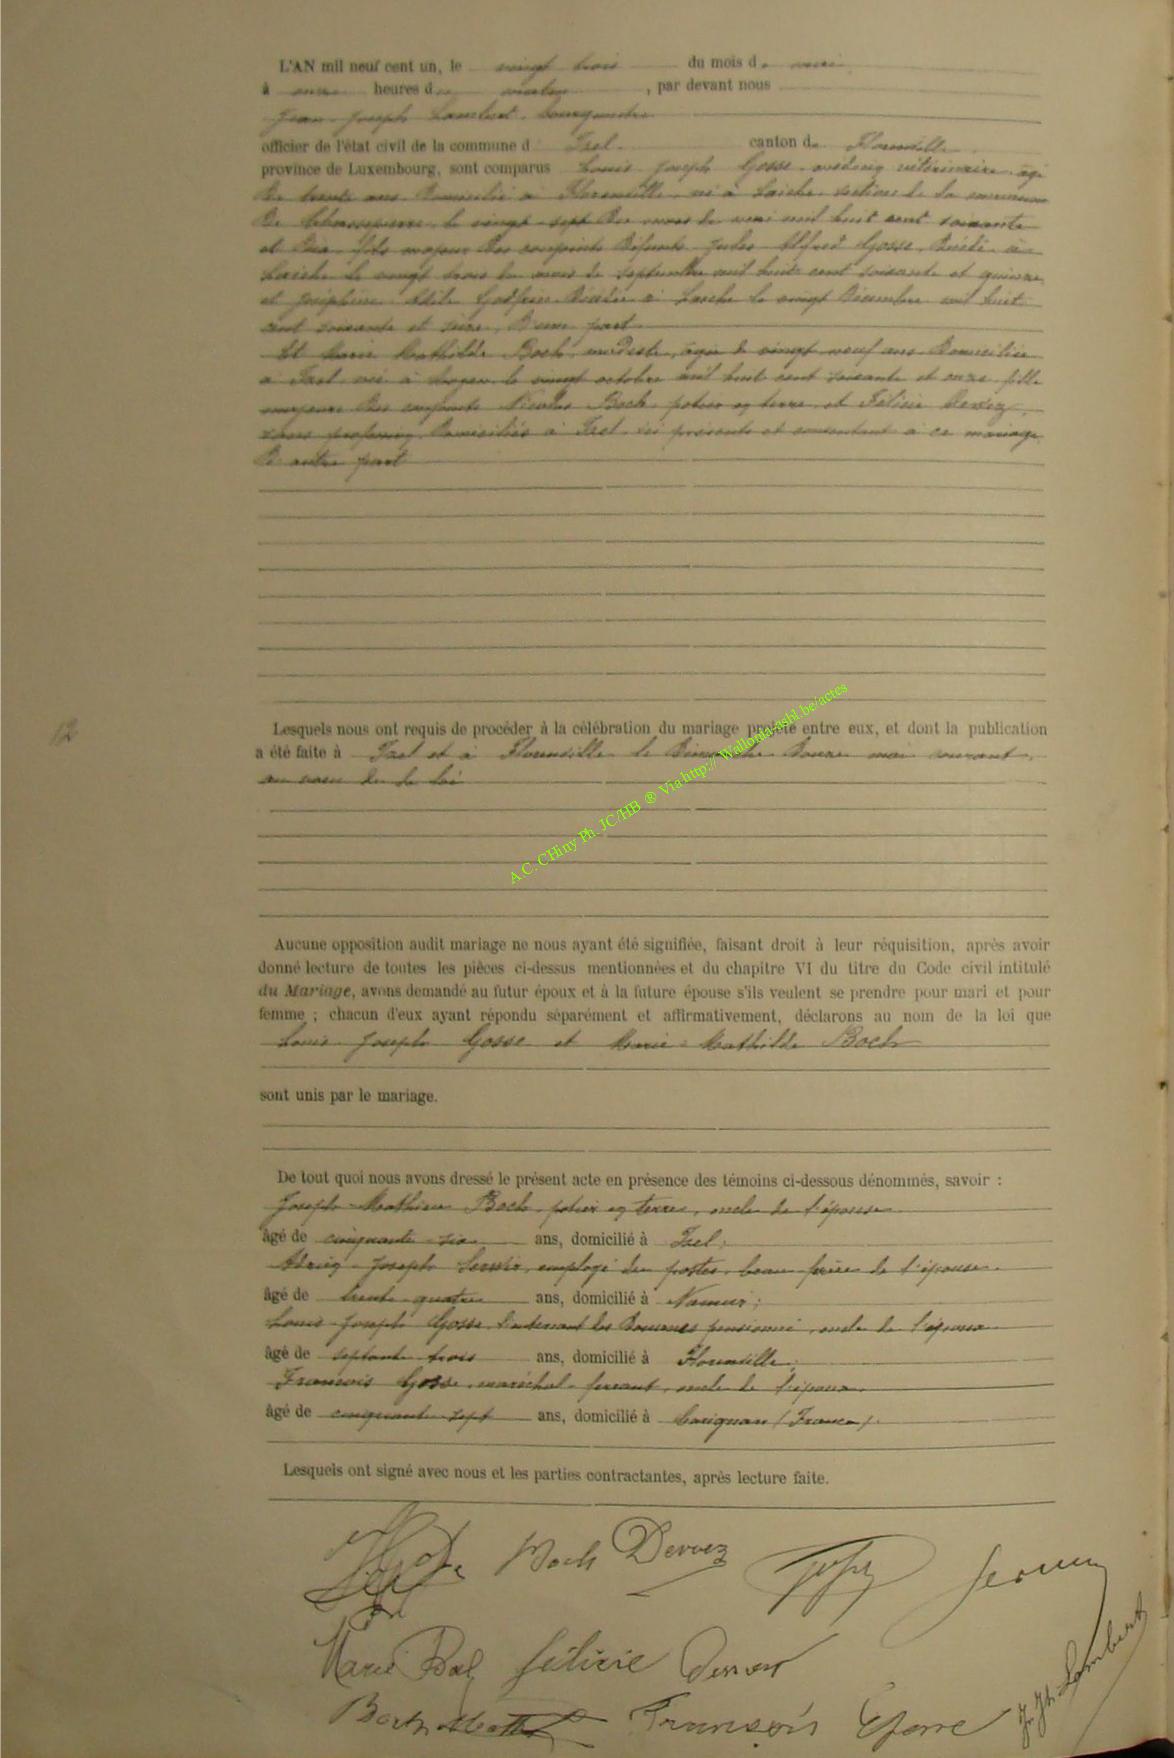 L'AN mil neuf cent un, le vingt trois du mois de mai
à onze heures du matin, par devant nous
Jean Joseph Lambert, bourgmestre
officier de l'état civil de la commune d'Izel canton de Florenville
province de Luxembourg, sont comparus Louis Joseph Gosse, médecin vétérinaire, âgé
de trente ans, domicilié à Florenville, né à Laiche, section de la commune
de , le vingt-sept du mois de mai mil huit cent soixante
et dix, fils majeur des conjoints défunts Jules Alfred Gosse, décédé à
Laiche le vingt trois du mois de septembre mil huit cent soixante et quinze
et Joséphine Adile décédée à Laiche le vingt décembre mil huit
cent soixante et seize, d'une part
Et Marie Mathilde Boch, modiste, âgée de vingt neuf ans, domiciliée
à Izel, née à le vingt octobre mil huit cent soixante et onze, fille
majeure des conjoints Nicolas Boch, potier en terre, et Félicie Dervez,
sans profession, domiciliés à Izel, ici présents et consentant à ce mariage
d'autre part
12
Lesquels nous ont requis de procéder à la célébration du mariage projeté entre eux, et dont la publication
a été faite à Izel et à Florenville le Dimanche Douze mai courant,
au vœu de la loi
A.C. CHiny Ph. JC/HB ® Via http:// Wallonia-asbl.be/actes
Aucune opposition audit mariage ne nous ayant été signifiée, faisant droit à leur réquisition, après avoir
donné lecture de toutes les pièces ci-dessus mentionnées et du chapitre VI du titre du Code civil intitulé
du Mariage, avons demandé au futur époux et à la future épouse s'ils veulent se prendre pour mari et pour
femme ; chacun d'eux ayant répondu séparément et affirmativement, déclarons au nom de la loi que
Louis Joseph Gosse et Marie-Mathilde Boch
sont unis par le mariage.
De tout quoi nous avons dressé le présent acte en présence des témoins ci-dessous dénommés, savoir :
Joseph-Mathieu Boch, potier en terre, oncle de l'épouse
âgé de cinquante-six ans, domicilié à Izel;
Joseph employé des postes, beau frère de l'épouse.
âgé de trente-quatre ans, domicilié à Namur;
Louis Joseph Gosse, lieutenant des Douanes pensionné, oncle de l'époux
âgé de septante-trois ans, domicilié à Florenville;
François Gosse, maréchal-ferrant, oncle de l'époux
âgé de cinquante-sept ans, domicilié à Carignan (France).
Lesquels ont signé avec nous et les parties contractantes, après lecture faite.
Boch Dervez
Marie Félicie
Boch François J. Jh. Lambert